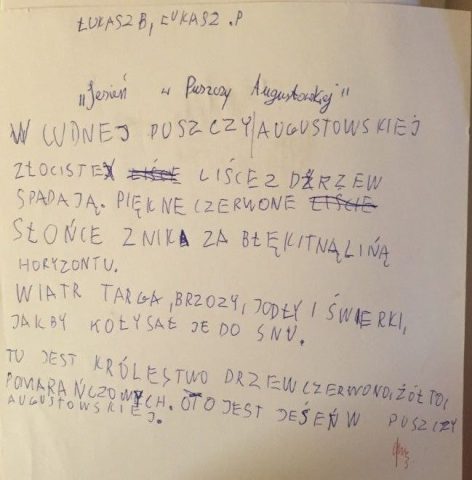 ŁUKASZ B, ŁUKASZ .P
„Jesień w Puszczy Augustowskiej"
W CUDNEJ PUSZCZY AUGUSTOWSKIEJ
ZŁOCISTE LIŚCE Z DRZEW
SPADAJĄ. PIĘKNE CZERWONE
SŁOŃCE ZNIKA ZA BŁĘKITNĄ LINĄ
HORYZONTU.
WIATR TARGA, BRZOZY, JODŁY I ŚWIERKI,
JAKBY KOŁYSAŁ JE DO SNU.
TU JEST KRÓLESTWO DRZEW CZERWONO, ŻÓŁTO,
POMARAŃCZOWYCH. OTO JEST JESEŃ W PUSZCZY
AUGUSTOWSKIEJ.